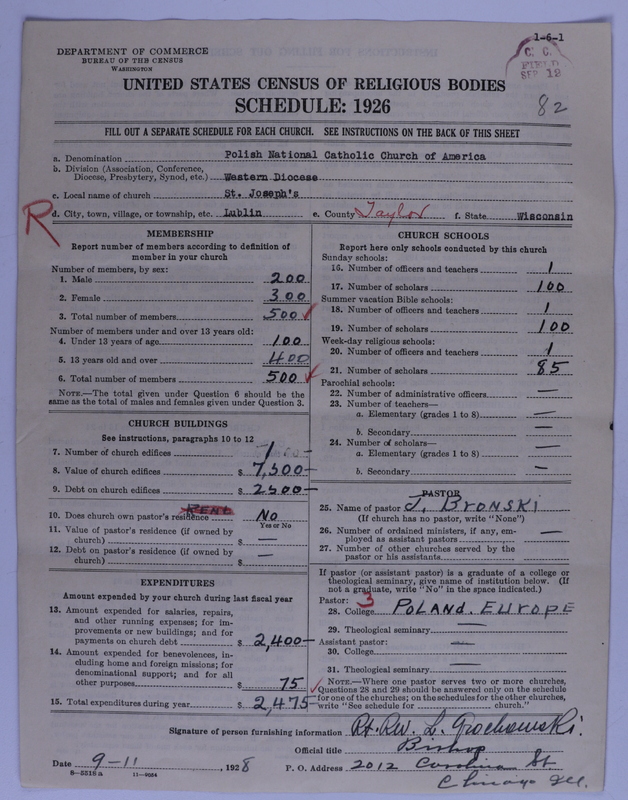 1-6-1
DEPARTMENT OF COMMERCE
BUREAU OF THE CENSUS
WASHINGTON
C. C.
FIELD
SEP 12
UNITED STATES CENSUS OF RELIGIOUS BODIES
SCHEDULE: 1926
82
FILL OUT A SEPARATE SCHEDULE FOR EACH CHURCH. SEE INSTRUCTIONS ON THE BACK OF THIS SHEET
a. Denomination Polish National Catholic Church of America
b. Division (Association, Conference,
Diocese, Presbytery, Synod, etc.) Western Diocese
c. Local name of church St. Joseph's
R
d. City, town, village, or township, etc. Lublin e. County Taylor f. State Wisconsin
MEMBERSHIP
Report number of members according to definition of
member in your church
Number of members, by sex:
1. Male 200
2. Female 300
3. Total number of members 500 ✓
Number of members under and over 13 years old:
4. Under 13 years of age 100
5. 13 years old and over 400
6. Total number of members 500 ✓
NOTE.—The total given under Question 6 should be
same as the total of males and females given under Question 3.
CHURCH BUILDINGS
See instructions, paragraphs 10 to 12
7. Number of church edifices 1
8. Value of church edifices $ 7,500—
9. Debt on church edifices $ 2500—
RENT
10. Does church own pastor's residence No
Yes or No
11. Value of pastor's residence (if owned by
church) $ —
12. Debt on pastor's residence (if owned by
church) $ —
EXPENDITURES
Amount expended by your church during last fiscal year
13. Amount expended for salaries, repairs,
and other running expenses; for im-
provements or new buildings; and for
payments on church debt $ 2,400—
14. Amount expended for benevolences, in-
cluding home and foreign missions; for
denominational support; and for all
other purposes $ 75
15. Total expenditures during year $ 2,475— ✓
CHURCH SCHOOLS
Report here only schools conducted by this church
Sunday schools:
16. Number of officers and teachers 1
17. Number of scholars 100
Summer vacation Bible schools:
18. Number of officers and teachers 1
19. Number of scholars 100
Week-day religious schools:
20. Number of officers and teachers 1
21. Number of scholars 85
Parochial schools:
22. Number of administrative officers —
23. Number of teachers—
a. Elementary (grades 1 to 8) —
b. Secondary —
24. Number of scholars—
a. Elementary (grades 1 to 8) —
b. Secondary —
PASTOR
25. Name of pastor J. Bronski
(If church has no pastor, write "None")
26. Number of ordained ministers, if any, em-
ployed as assistant pastors —
27. Number of other churches served by the
pastor or his assistants
If pastor (or assistant pastor) is a graduate of a college or
theological seminary, give name of institution below. (If
not a graduate, write "No" in the space indicated.)
Pastor: 3
28. College POLAND. EUROPE
29. Theological seminary —
Assistant pastor:
30. College —
31. Theological seminary —
NOTE.—Where one pastor serves two or more churches,
Questions 28 and 29 should be answered only on the schedule
for one of the churches; on the schedules for the other churches,
write "See schedule for church."
Signature of person furnishing information Rt. Rev. L. Grochowski
Official title Bishop
Date 9-11, 1928 P. O. Address 2012 Carolina St.
8—5518 a 11—9054 Chicago Ill.